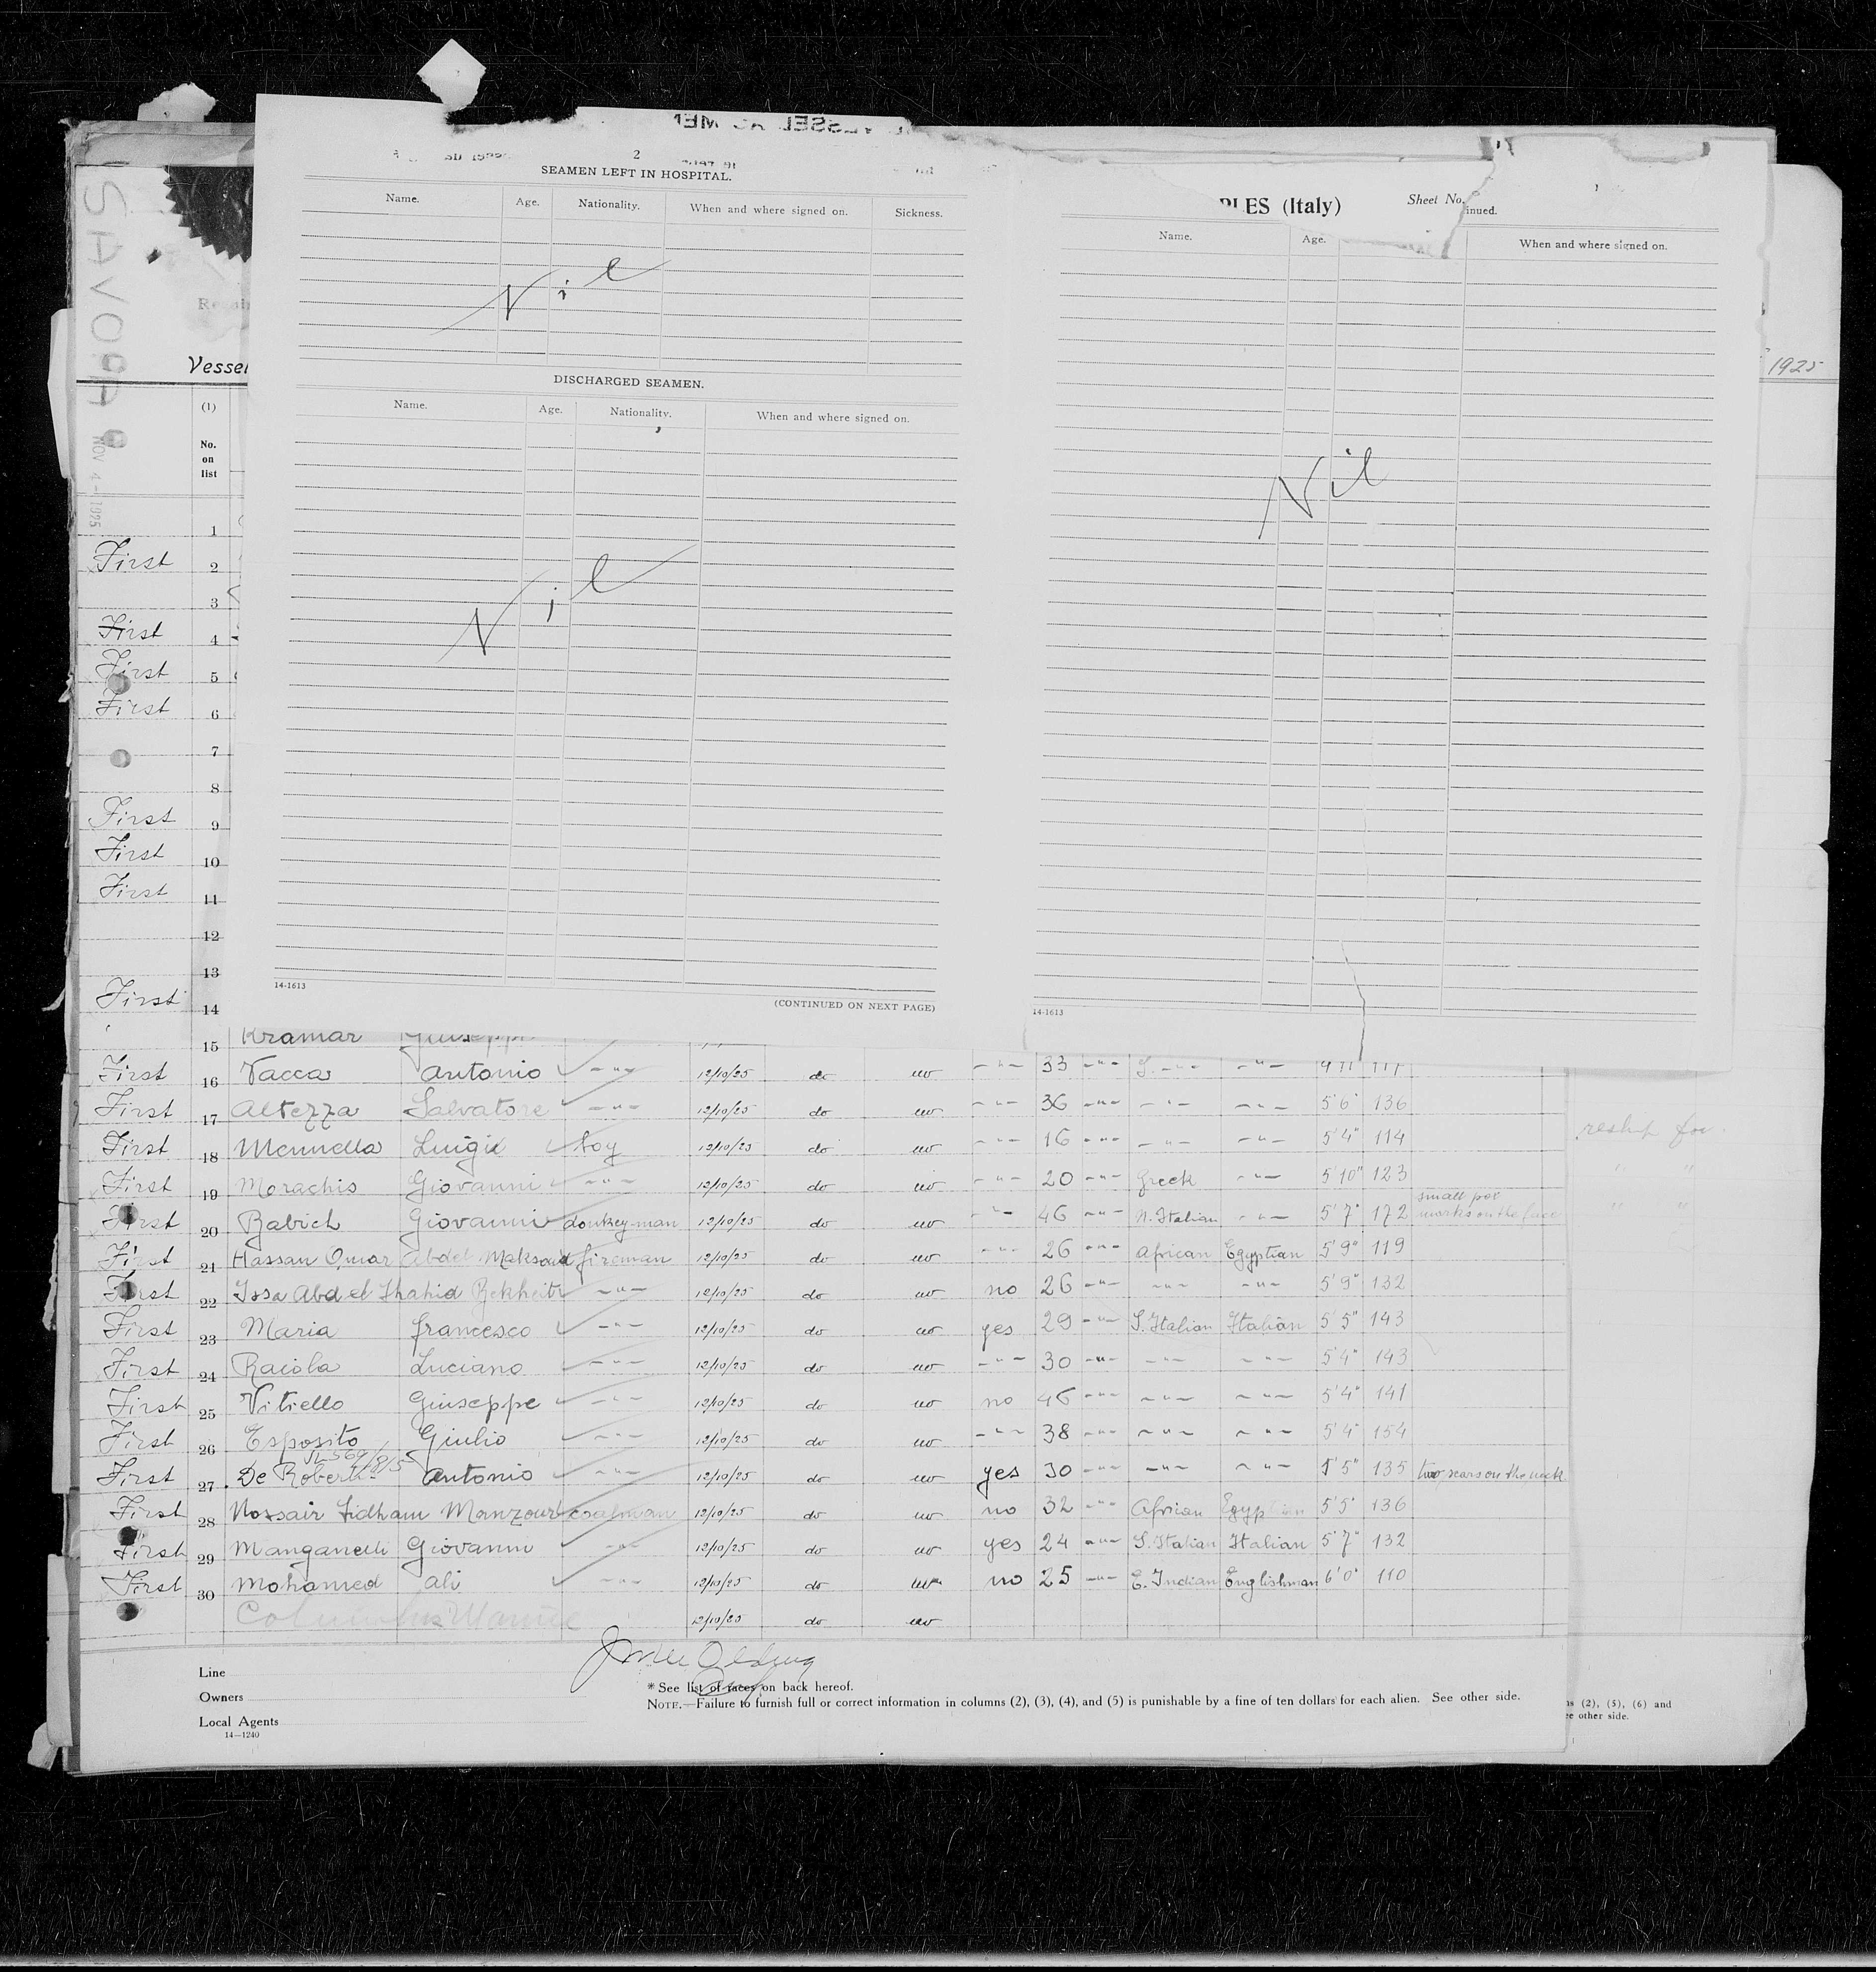 2
SEAMEN LEFT IN HOSPITAL.
Name. Age. Nationality. When and where signed on. Sickness.
Nil
DISCHARGED SEAMEN.
Name. Age. Nationality. When and where signed on.
Nil
14-1613
(CONTINUED ON NEXT PAGE)
PLES (Italy) Sheet No.
inued.
Name. Age. When and where signed on.
Nil
14-1613
SAVOIA
NOV 4 - 1925
Vessel
1925
(1)
No.
on
list
1
First 2
3
First 4
First 5
First 6
7
8
First 9
First 10
First 11
12
13
First 14
15 Kramar Giuseppe
First 16 Vacca Antonio -"- 12/10/25 do no -"- 33 -"- S. -"- -"-
First 17 Altezza Salvatore -"- 12/10/25 do no -"- 36 -"- -"- -"- 5'6" 136
First 18 Mennella Luigi boy 12/10/25 do no -"- 16 -"- -"- -"- 5'4" 114 reship for.
First 19 Morachis Giovanni -"- 12/10/25 do no -"- 20 -"- Greek -"- 5'10" 123 " "
First 20 Babich Giovanni donkey-man 12/10/25 do no -"- 46 -"- N. Italian -"- 5'7" 172 small pox marks on the face " "
First 21 Hassan Omar Abdel Maksoud fireman 12/10/25 do no -"- 26 -"- African Egyptian 5'9" 119
First 22 Issa Abd el Shahid Bekheit -"- 12/10/25 do no no 26 -"- -"- -"- 5'9" 132
First 23 Maria Francesco -"- 12/10/25 do no yes 29 -"- S. Italian Italian 5'5" 143
First 24 Raiola Luciano -"- 12/10/25 do no -"- 30 -"- -"- -"- 5'4" 143
First 25 Vitiello Giuseppe -"- 12/10/25 do no no 46 -"- -"- -"- 5'4" 141
First 26 Esposito Giulio -"- 12/10/25 do no -"- 38 -"- -"- -"- 5'4" 154
First 27 De Robertis Antonio -"- 12/10/25 do no yes 30 -"- -"- -"- 5'5" 135 two scars on the neck
First 28 Nossair Fidham Manzour coalman 12/10/25 do no no 32 -"- African Egyptian 5'5" 136
First 29 Manganelli Giovanni -"- 12/10/25 do no yes 24 -"- S. Italian Italian 5'7" 132
First 30 Mohamed Ali -"- 12/10/25 do no no 25 -"- E. Indian Englishman 6'0" 110
12/10/25 do no
Line
Owners
Local Agents
14—1240
* See list of races on back hereof.
NOTE.—Failure to furnish full or correct information in columns (2), (3), (4), and (5) is punishable by a fine of ten dollars for each alien. See other side.
s (2), (5), (6) and
ee other side.